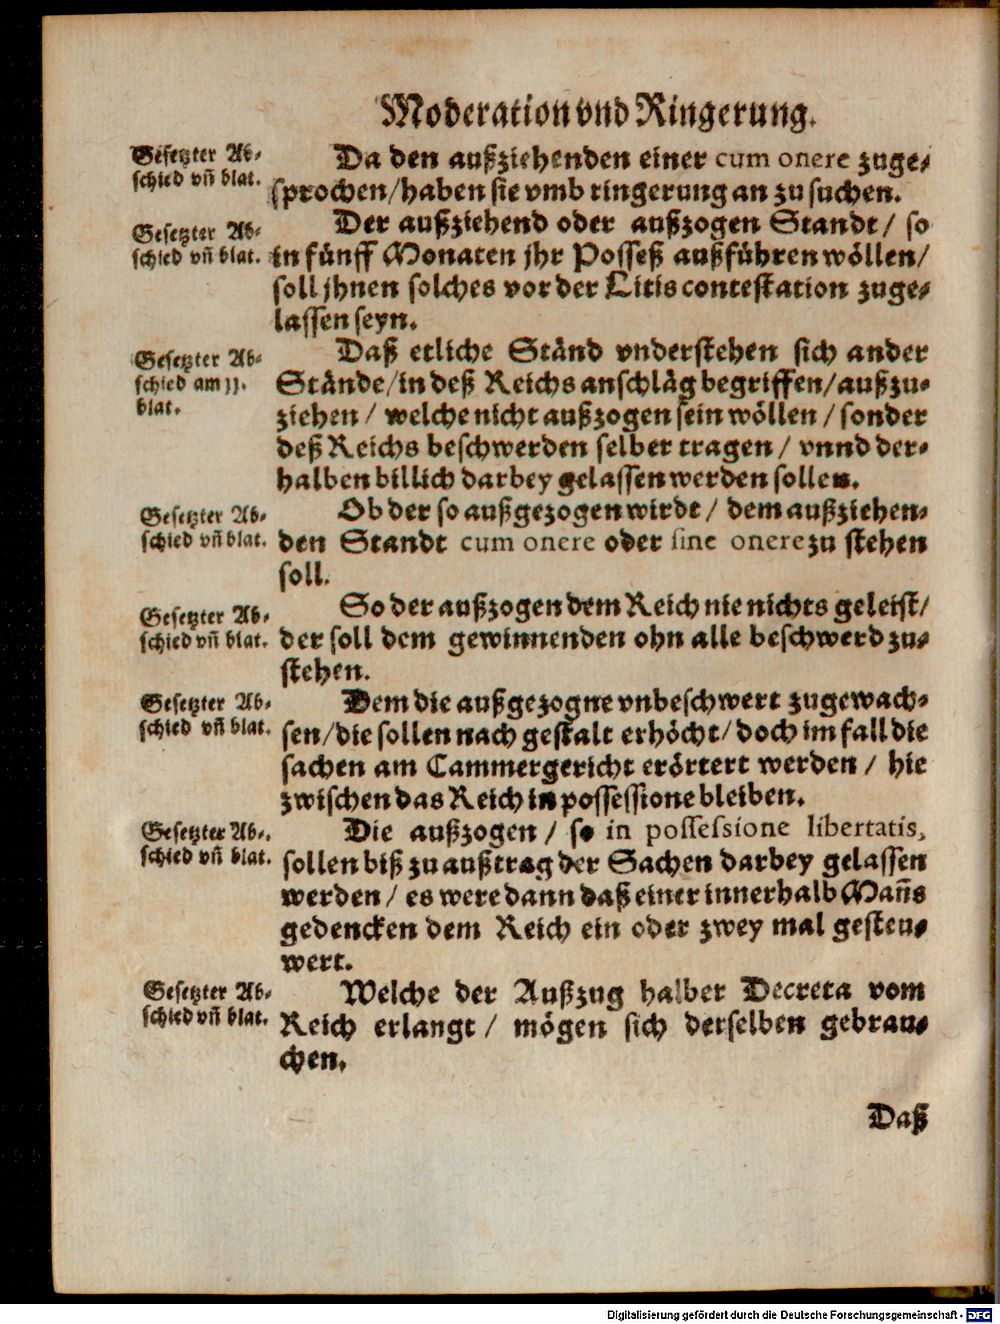 Moderation vnd Ringerung.
Gesetzter Ab-
schied vñ blat.
Da den außziehenden einer cum onere zuge-
sprochen/haben sie vmb ringerung an zu suchen.
Gesetzter Ab-
schied vñ blat.
Der außziehend oder außzogen Standt/ so
in fünff Monaten jhr Posseß außführen wöllen/
soll jhnen solches vor der Litis contestation zuge-
lassen seyn.
Gesetzter Ab-
schied am 11.
blat.
Daß etliche Ständ vnderstehen sich ander
Stände/in deß Reichs anschläg begriffen/außzu-
ziehen/ welche nicht außzogen sein wöllen/ sonder
deß Reichs beschwerden selber tragen/ vnnd der-
halben billich darbey gelassen werden sollen.
Gesetzter Ab-
schied vñ blat.
Ob der so außgezogen wirdt/ dem außziehen-
den Standt cum onere oder sine onere zu stehen
soll.
Gesetzter Ab-
schied vñ blat.
So der außzogen dem Reich nie nichts geleist/
der soll dem gewinnenden ohn alle beschwerd zu-
stehen.
Gesetzter Ab-
schied vñ blat.
Dem die außgezogne vnbeschwert zugewach-
sen/die sollen nach gestalt erhöcht/doch im fall die
sachen am Cammergericht erörtert werden/ hie
zwischen das Reich in possessione bleiben.
Gesetzter Ab-
schied vñ blat.
Die außzogen/ so in possessione libertatis,
sollen biß zu außtrag der Sachen darbey gelassen
werden/ es were dann daß einer innerhalb Mañs
gedencken dem Reich ein oder zwey mal gesteu-
wert.
Gesetzter Ab-
schied vñ blat.
Welche der Außzug halber Decreta vom
Reich erlangt/ mögen sich derselben gebrau-
chen.
Daß
Digitalisierung gefördert durch die Deutsche Forschungsgemeinschaft - DFG